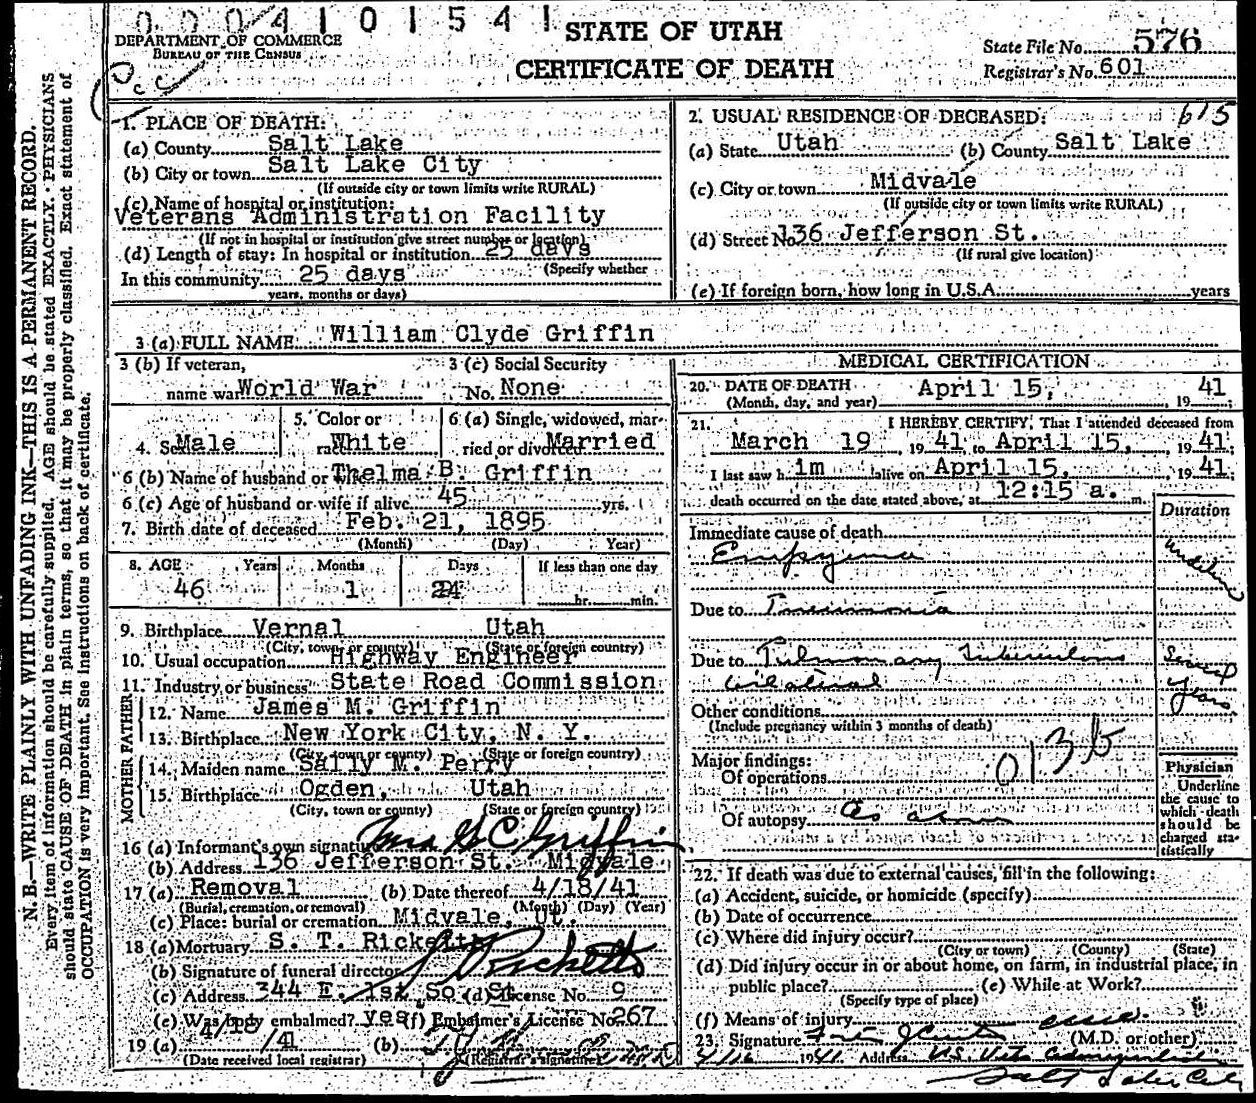 0004101541
DEPARTMENT OF COMMERCE
BUREAU OF THE CENSUS
STATE OF UTAH
CERTIFICATE OF DEATH
State File No. 576
Registrar's No. 601
N. B.—WRITE PLAINLY WITH UNFADING INK—THIS IS A PERMANENT RECORD.
Every item of information should be carefully supplied. AGE should be stated EXACTLY. PHYSICIANS
should state CAUSE OF DEATH in plain terms, so that it may be properly classified. Exact statement of
OCCUPATION is very important. See instructions on back of certificate.
1. PLACE OF DEATH:
(a) County Salt Lake
(b) City or town Salt Lake City
(If outside city or town limits write RURAL)
(c) Name of hospital or institution:
Veterans Administration Facility
(If not in hospital or institution give street number or location)
(d) Length of stay: In hospital or institution 25 days
(Specify whether
In this community 25 days
years, months or days)
2. USUAL RESIDENCE OF DECEASED: 615
(a) State Utah (b) County Salt Lake
(c) City or town Midvale
(If outside city or town limits write RURAL)
(d) Street No. 136 Jefferson St.
(If rural give location)
(e) If foreign born, how long in U.S.A. years
3 (a) FULL NAME William Clyde Griffin
3 (b) If veteran,
name war World War
3 (c) Social Security
No. None
4. Sex Male
5. Color or
race White
6 (a) Single, widowed, mar-
ried or divorced Married
6 (b) Name of husband or wife Thelma B. Griffin
6 (c) Age of husband or wife if alive 45 yrs.
7. Birth date of deceased Feb. 21, 1895
(Month) (Day) Year)
8. AGE Years Months Days If less than one day
46 1 24 hr. min.
9. Birthplace Vernal Utah
(City, town or county) (State or foreign country)
10. Usual occupation Highway Engineer
11. Industry or business State Road Commission
MOTHER FATHER
12. Name James M. Griffin
13. Birthplace New York City, N. Y.
(City, town or county) (State or foreign country)
14. Maiden name Sally M. Perry
15. Birthplace Ogden, Utah
(City, town or county) (State or foreign country)
16 (a) Informant's own signature Mrs W C Griffin
(b) Address 136 Jefferson St. Midvale
17 (a) Removal (b) Date thereof 4/18/41
(Burial, cremation, or removal) (Month) (Day) (Year)
(c) Place: burial or cremation Midvale, Ut.
18 (a) Mortuary S. T. Ricketts
(b) Signature of funeral director Ricketts
(c) Address 344 E. 1st So. St. (d) License No. 9
(e) Was body embalmed? yes (f) Embalmer's License No. 267
19 (a) 4/18/41 (b)
(Date received local registrar) (Registrar's signature)
MEDICAL CERTIFICATION
20. DATE OF DEATH April 15, 1941
(Month, day, and year)
21. I HEREBY CERTIFY, That I attended deceased from
March 19, 1941, to April 15, 1941;
I last saw him alive on April 15, 1941;
death occurred on the date stated above, at 12:15 a. m.
Duration
Immediate cause of death
Empyema
Due to Pneumonia
Due to Pulmonary Tuberculosis
bilateral
Several
Years
Other conditions
(Include pregnancy within 3 months of death)
Major findings: 013b
Of operations
Of autopsy as above
Physician
Underline
the cause to
which death
should be
charged sta-
tistically
22. If death was due to external causes, fill in the following:
(a) Accident, suicide, or homicide (specify)
(b) Date of occurrence
(c) Where did injury occur?
(City or town) (County) (State)
(d) Did injury occur in or about home, on farm, in industrial place, in
public place? (e) While at Work?
(Specify type of place)
(f) Means of injury
23. Signature (M.D. or other)
4/16 1941. Address U.S. Vets
Salt Lake City